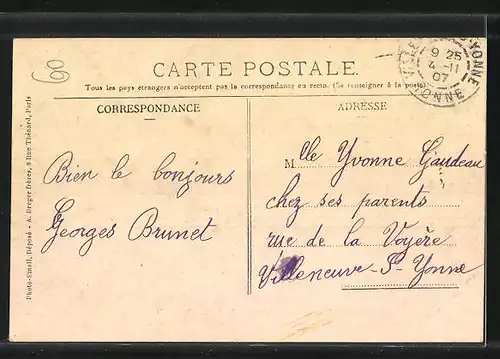 60
CARTE POSTALE.
Tous les pays étrangers n'acceptent pas la correspondance au recto. (Se renseigner à la poste).
CORRESPONDANCE
ADRESSE
Bien le bonjours
Georges Brunet
Mlle Yvonne Gaudeau
chez ses parents
rue de la Voyère
Villeneuve-S-Yonne
9 25
4 -11
07
YONNE
Photo-Email, Déposé - A. Breger frères, 8 Rue Thénard, Paris